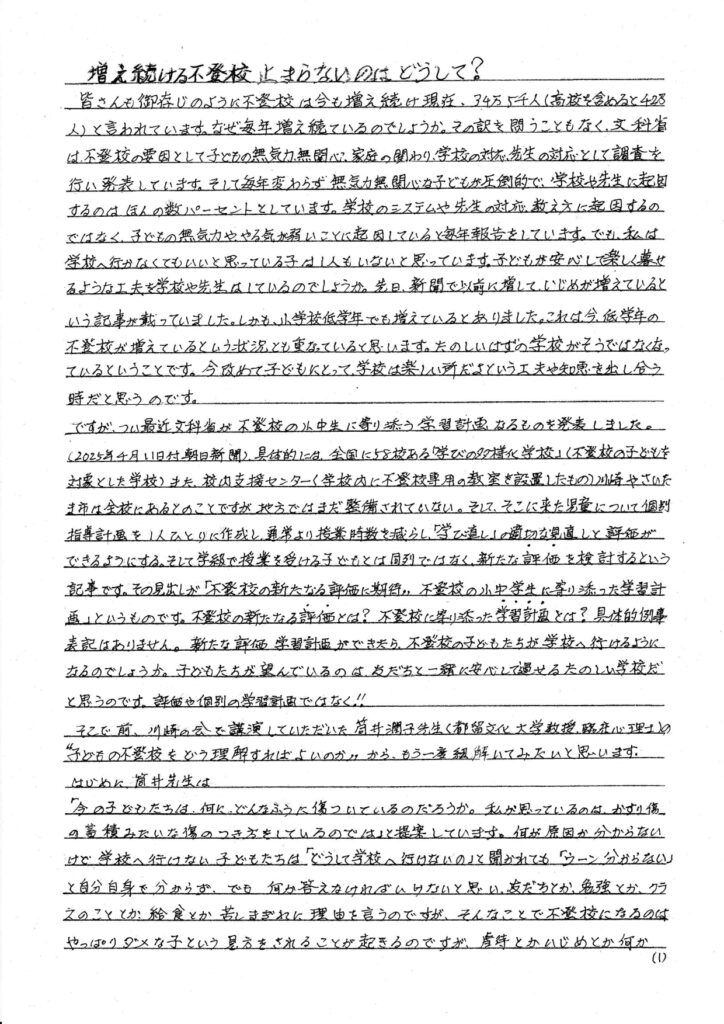 増え続ける不登校 止まらないのは どうして?
皆さんも御存じのように不登校は今も増え続け現在、34万5千人(高校を含めると42万
人)と言われています。なぜ毎年増え続ているのでしょうか。その訳を問うこともなく、文科省
は、不登校の要因として子どもの無気力、無関心、家庭の関わり、学校の対応、先生の対応として調査を
行い発表しています。そして毎年変わらず無気力無関心な子どもが圧倒的で、学校や先生に起因
するのは ほんの数パーセントとしています。学校のシステムや先生の対応、教え方に起因するの
ではなく、子どもの無気力ややる気が弱いことに起因していると毎年報告をしています。でも、私は
学校へ行かなくてもいいと思っている子は1人もいないと思っています。子どもが安心して楽しく暮せ
るような工夫を学校や先生はしているのでしょうか。先日、新聞で以前に増して、いじめが増えていると
いう記事が載っていました。しかも、小学校低学年でも増えているとありました。これは今、低学年の
不登校が増えているという状況とも重なっていると思います。たのしいはずの学校がそうではなくなっ
ているということです。今改めて子どもにとって、学校は楽しい所だよという工夫や知恵を出し合う
時だと思うのです。
ですが、つい最近文科省が不登校の小中生に寄り添う学習計画なるものを発表しました。
(2025年4月11日付朝日新聞)、具体的には、全国に58校ある「学びの多様化学校」(不登校の子どもを
対象とした学校)また、校内支援センター(学校内に不登校専用の教室を設置したもの)川崎やさいた
ま市は全校にあるとのことですが、地方ではまだ整備されていない。そして、そこに来た児童について個別
指導計画を1人ひとりに作成し、通常より授業時数を減らし、「学び直し」の適切な見直しと評価が
できるようにする。そして学級で授業を受ける子どもとは同列ではなく、新たな評価を検討するという
記事です。その見出しが「不登校の新たなる評価に期待〃 不登校の小中学生に寄り添った学習計
画」というものです。不登校の新たなる評価とは? 不登校に寄り添った学習計画とは? 具体的例事
表記はありません。新たな評価 学習計画ができたら、不登校の子どもたちが学校へ行けるように
なるのでしょうか。子どもたちが望んでいるのは、友だちと一緒に安心して過せるたのしい学校だ
と思うのです。評価や個別の学習計画ではなく!!
そこで前、川崎の会で講演していただいた筒井潤子先生(都留文化大学教授、臨床心理士)の
“子どもの不登校をどう理解すればよいのか〃 から、もう一度紐解いてみたいと思います。
はじめに、筒井先生は
「今の子どもたちは、何に、どんなふうに傷ついているのだろうか。私が思っているのは、かすり傷
の蓄積みたいな傷のつき方をしているのでは」と提案しています。何が原因か分からない
けど 学校へ行けない子どもたちは「どうして学校へ行けないの」と聞かれても「ウーン分からない」
と自分自身で分からず、でも 何か答えなければいけないと思い、友だちとか、勉強とか、クラ
スのこととか、給食とか 苦しまぎれに理由を言うのですが、そんなことで不登校になるのは
やっぱりダメな子という見方をされることが起きるのですが、虐待とかいじめとか何か
(1)